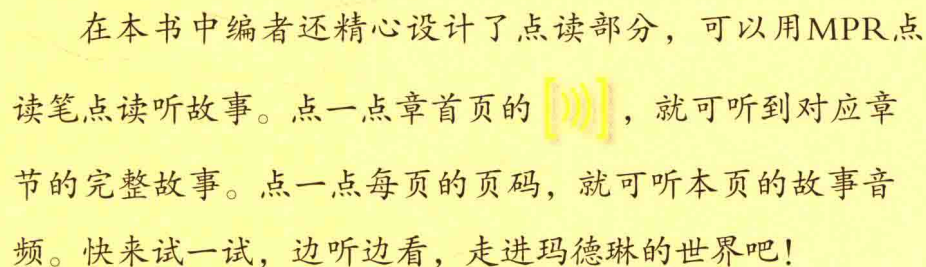 在本书中编者还精心设计了点读部分，可以用MPR点
读笔点读听故事。点一点章首页的[)))]，就可听到对应章
节的完整故事。点一点每页的页码，就可听本页的故事音
频。快来试一试，边听边看，走进玛德琳的世界吧！